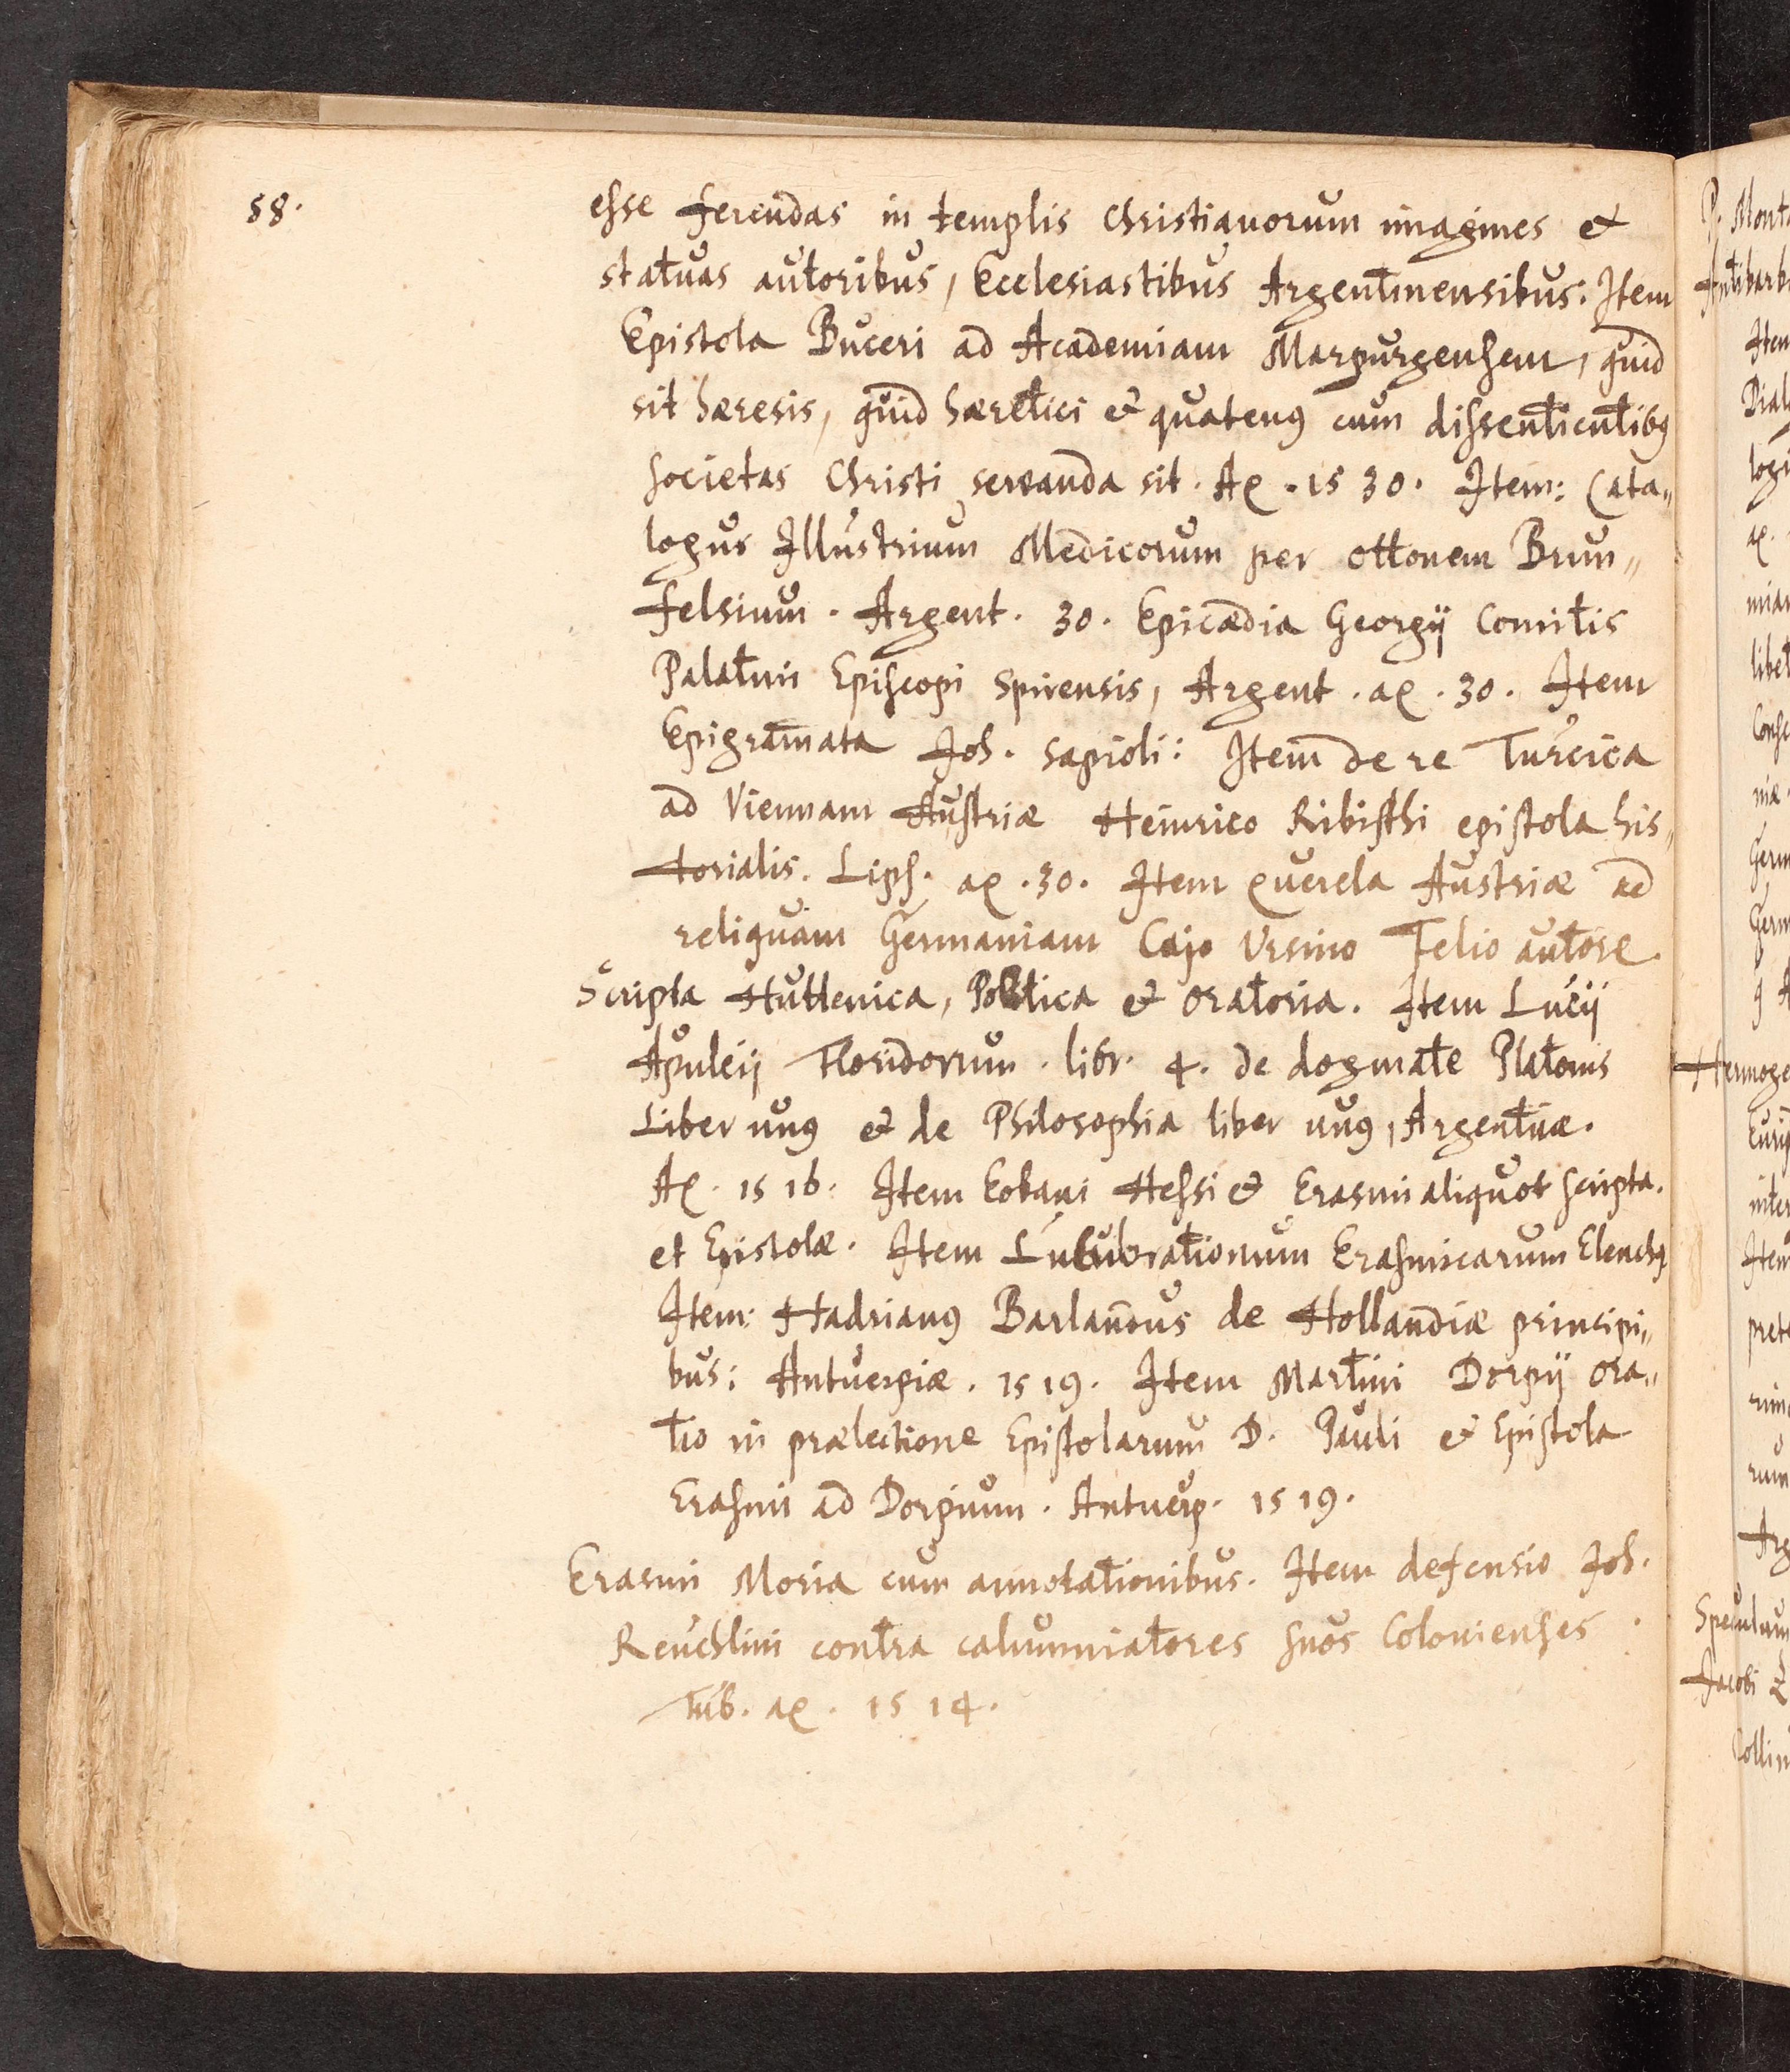 58.
esse ferendas in templis Christianorum imagines &
statuas autoribus, Ecclesiastibus Argentinensibus: Item
Epistola Buceri ad Academiam Marpurgensem, quid
sit hæresis, quid hæretici & quatenꝰ cum dissentientibꝰ
societas Christi servanda sit. Aͦ. 1530. Item: Cata„
logus Illustrium Medicorum per Ottonem Brun„
felsium. Argent. 30. Epicædia Georgij Comitis
Palatini Episcopi Spirensis, Argent. aͦ. 30. Item
Epigram̄ata Joh. Sapidi: Item de re Turcica
ad Viennam Austriæ Heinrico Ribisthi epistola his„
torialis. Lips. aͦ. 30. Item Querela Austriæ ad
reliquam Germaniam Cajo Ursino Felio autore.
Scripta Huttenica, Poëtica & Oratoria. Item Lucij
Apuleij Floridorum. libr. 4. de dogmate Platonis
Liber unꝰ & de Philosophia liber unꝰ, Argentinæ.
Aͦ. 1516. Item Eobani Hessi & Erasmi aliquot scripta.
et Epistolæ. Item Lucubrationum Erasmicarum Elenchꝰ
Item: Hadrianꝰ Barlandus de Hollandiæ principi„
bus: Antuerpiæ. 1519. Item Martini Dorpij ora„
tio in prælectione Epistolarum D. Pauli & Epistola
Erasmi ad Dorpium. Antuerp. 1519.
Erasmi Moria cum annotationibus. Item defensio Joh.
Reuchlini contra calumniatores suos Colonienses.
Tub. aͦ. 1514.